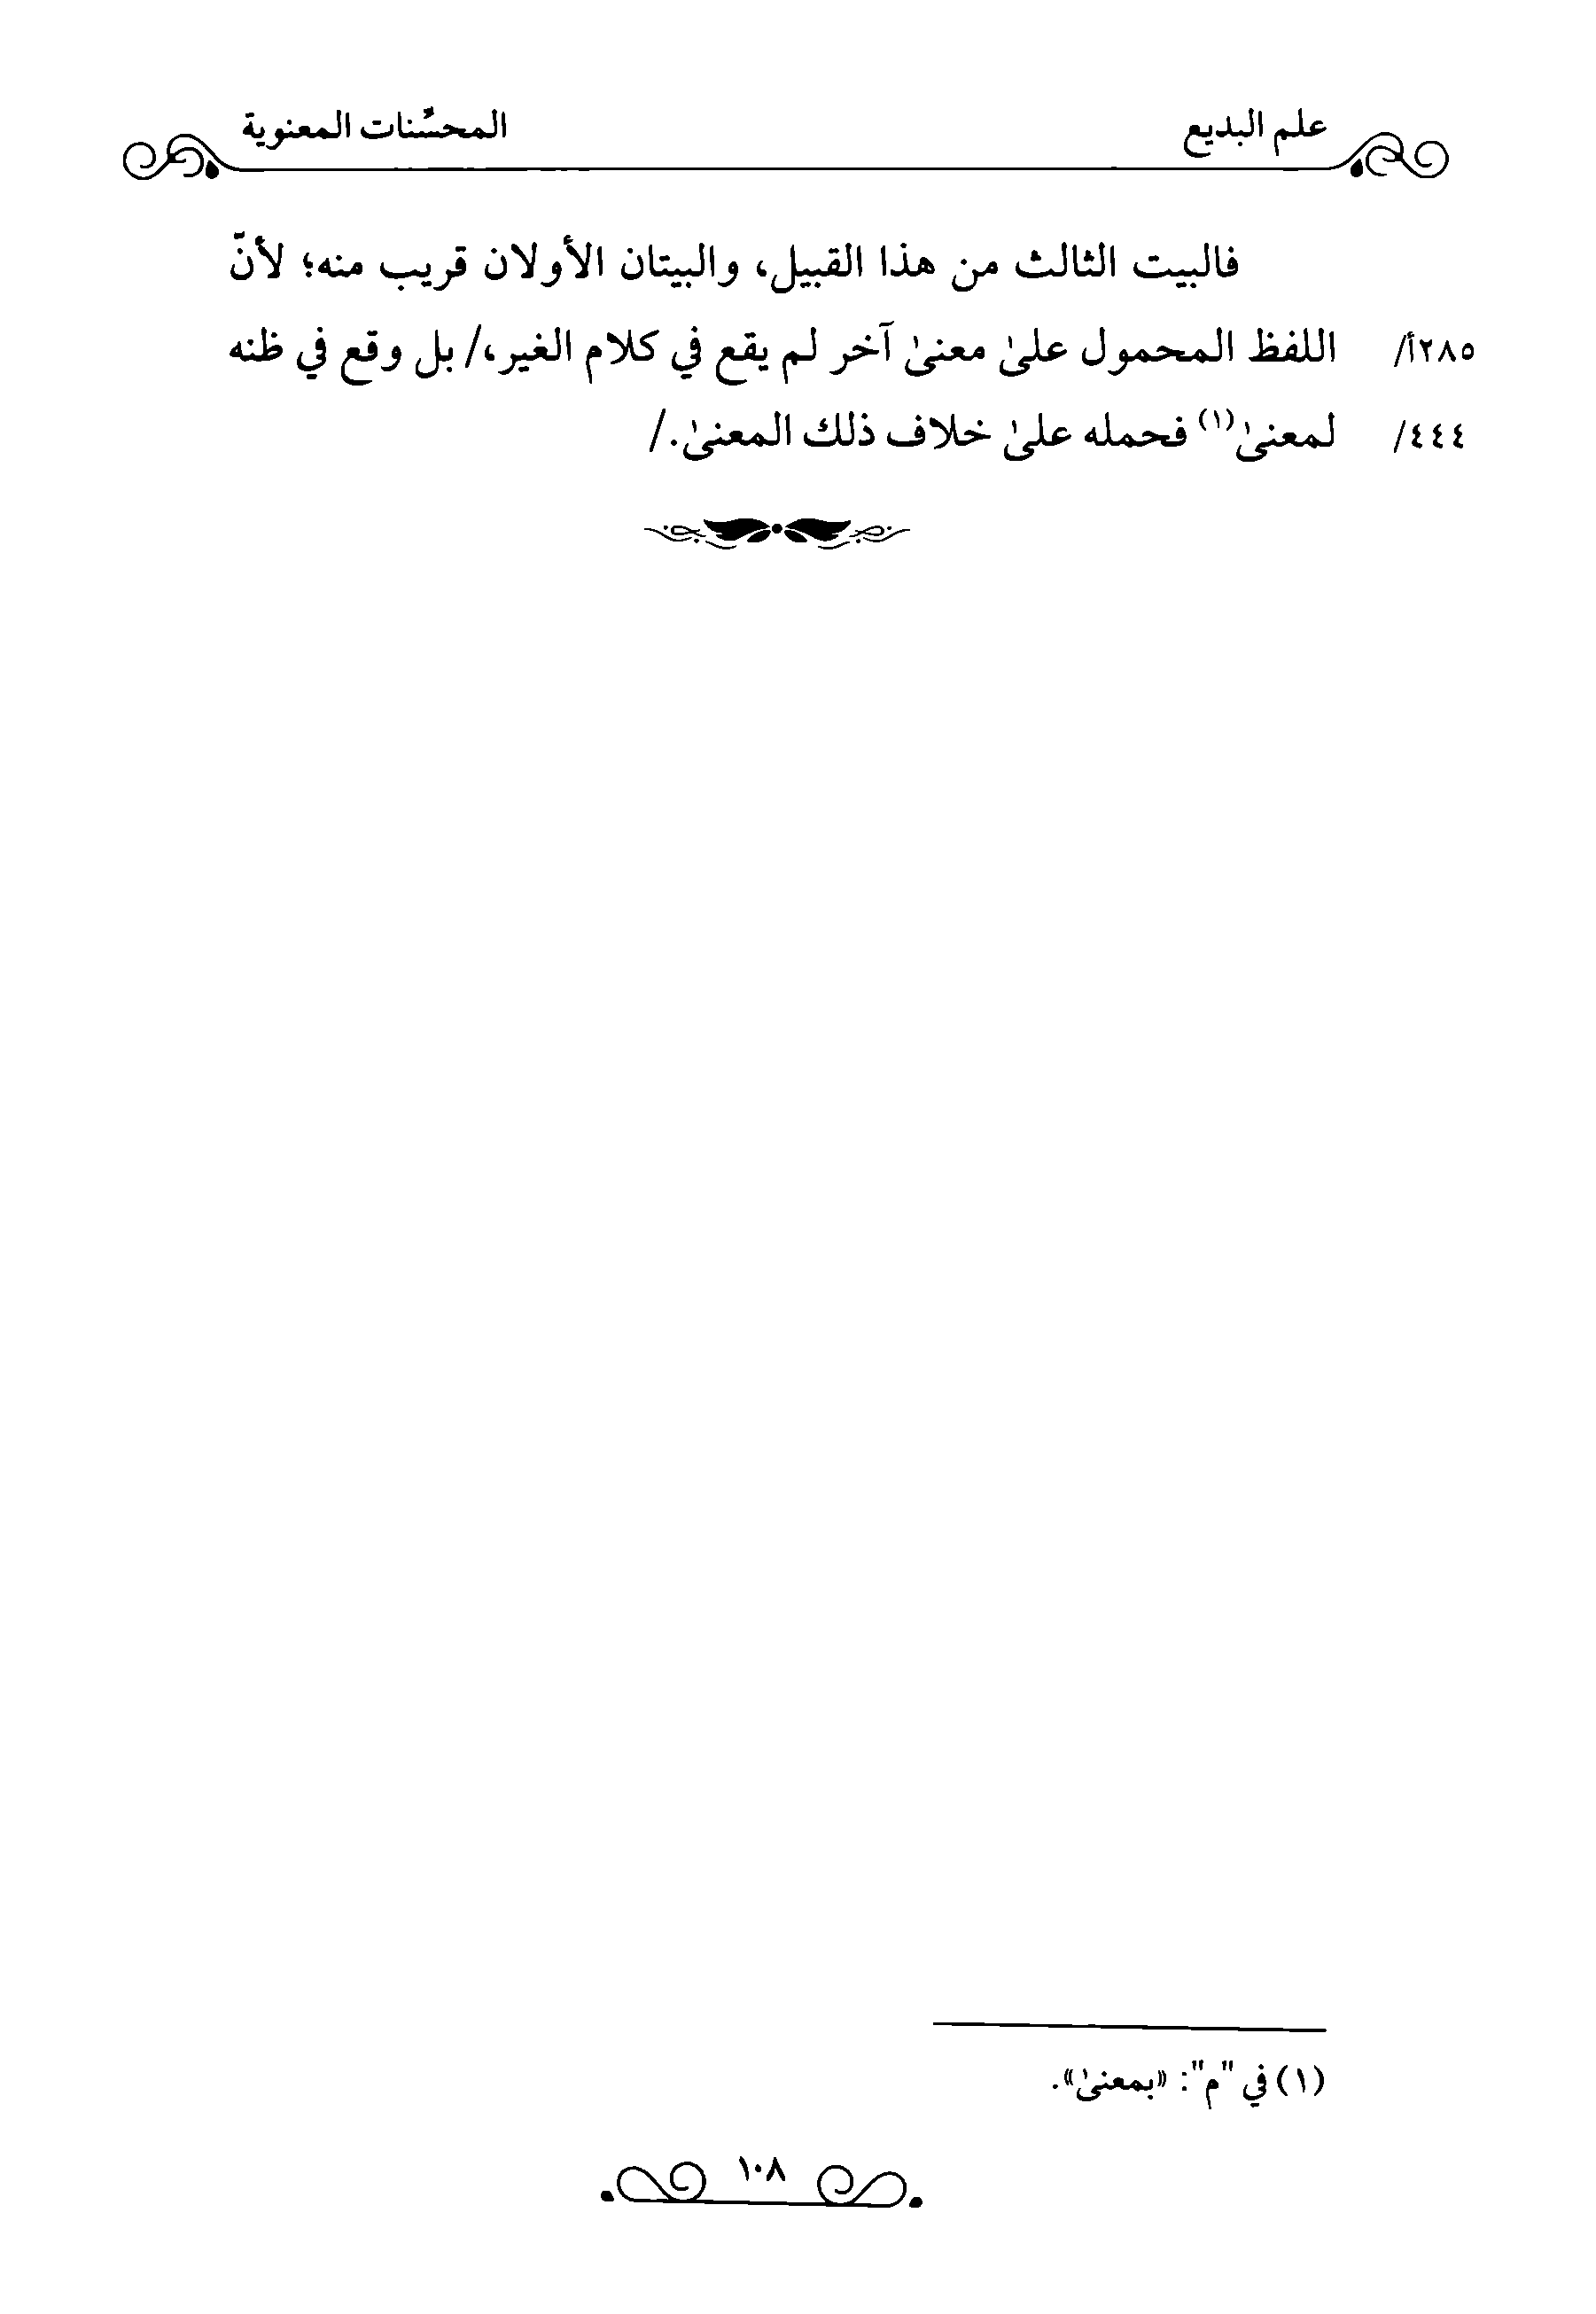 علم البديع
المحسِّنات المعنوية
فالبيت الثالث من هذا القبيل، والبيتان الأولان قريب منه؛ لأنّ
٢٨٥أ/ اللفظ المحمول علىٰ معنىٰ آخر لم يقع في كلام الغير،/ بل وقع في ظنه
٤٤٤/ لمعنىٰ(١) فحمله علىٰ خلاف ذلك المعنىٰ./
(١) في "م": «بمعنىٰ».
١٠٨